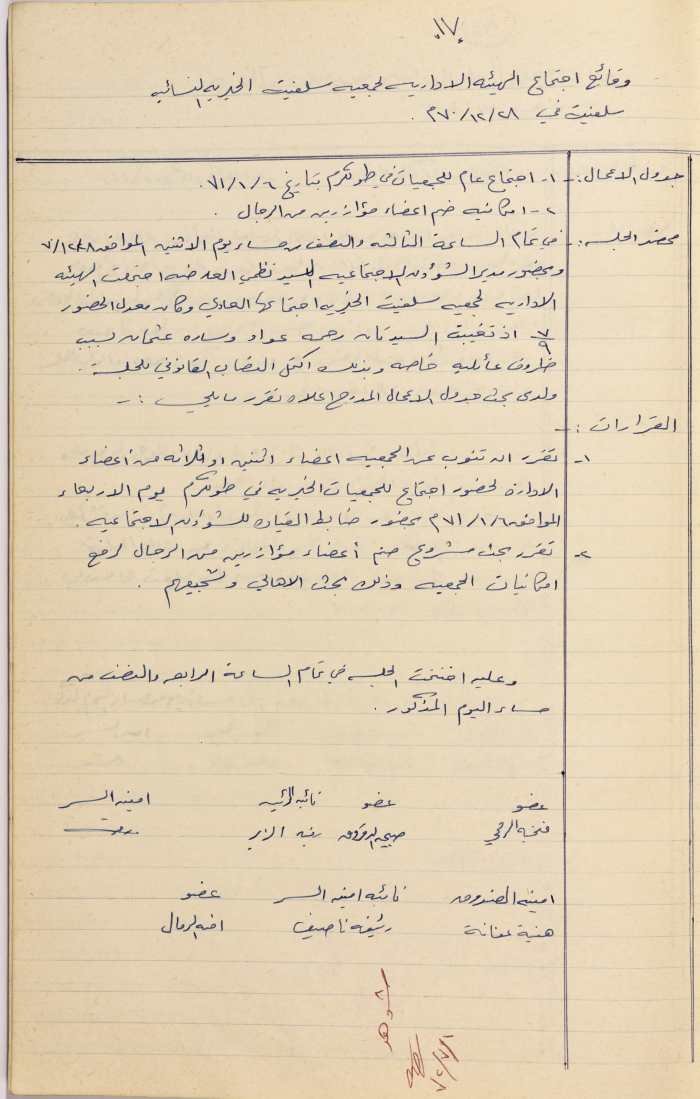 ١٧
وقائع اجتماع الهيئه الاداريه لجمعيه سلفيت الخيريه النسائيه
سلفيت في ٧٠/١٢/٢٨م.
جدول الاعمال :- ١- اجتماع عام للجمعيات في طولكرم بتاريخ ٧١/١/٦.
٢- امكانيه ضم اعضاء مؤازرين من الرجال.
محضر الجلسه :- في تمام الساعة الثالثه والنصف من مساء يوم الاثنين الموافق ٧٠/١٢/٢٨
وبحضور مدير الشؤون الاجتماعيه السيد نظمي اجتمعت الهيئه
الاداريه لجمعيه سلفيت الخيريه اجتماعها العادي وكان معدل الحضور
٧/٩ اذ تغيبت السيدتان رحمه عواد وساره عثمان بسبب
ظروف عائليه خاصه وبذلك اكتمل النصاب القانوني للجلسة.
ولدى بحث جدول الاعمال المدرج اعلاه تقرر ما يلي :-
القرارات :-
١- تقرر ان تنوب عن الجمعيه اعضاء اثنين او ثلاثه من أعضاء
الادارة لحضور اجتماع للجمعيات الخيريه في طولكرم يوم الاربعاء
الموافق ٧١/١/٦م بحضور ضابط القياده للشؤون الاجتماعيه.
٢- تقرر بحث مشروع ضم أعضاء مؤازرين من الرجال لرفع
امكانيات الجمعيه وذلك بحث الاهالي وتشجيعهم.
وعليه اختتمت الجلسه في تمام الساعة الرابعه والنصف من
مساء اليوم المذكور.
عضو عضو نائبه الرئيسه امينه السر
فتحيه صبحيه رغد الزير
امينه الصندوق نائبه امينه السر عضو
هنية عفانة رئيفه ناصيف
شوهد